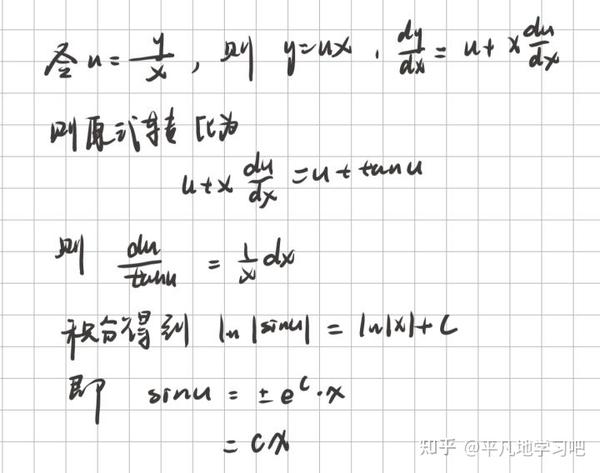 令 u = y/x , 则 y=ux , dy/dx = u + x du/dx
则原式转化为
u + x du/dx = u + tan u
则 du/tanu = 1/x dx
积分得到 ln |sinu| = ln|x| + C
即 sinu = ± e^C · x
= cx
知乎 @平凡地学习吧